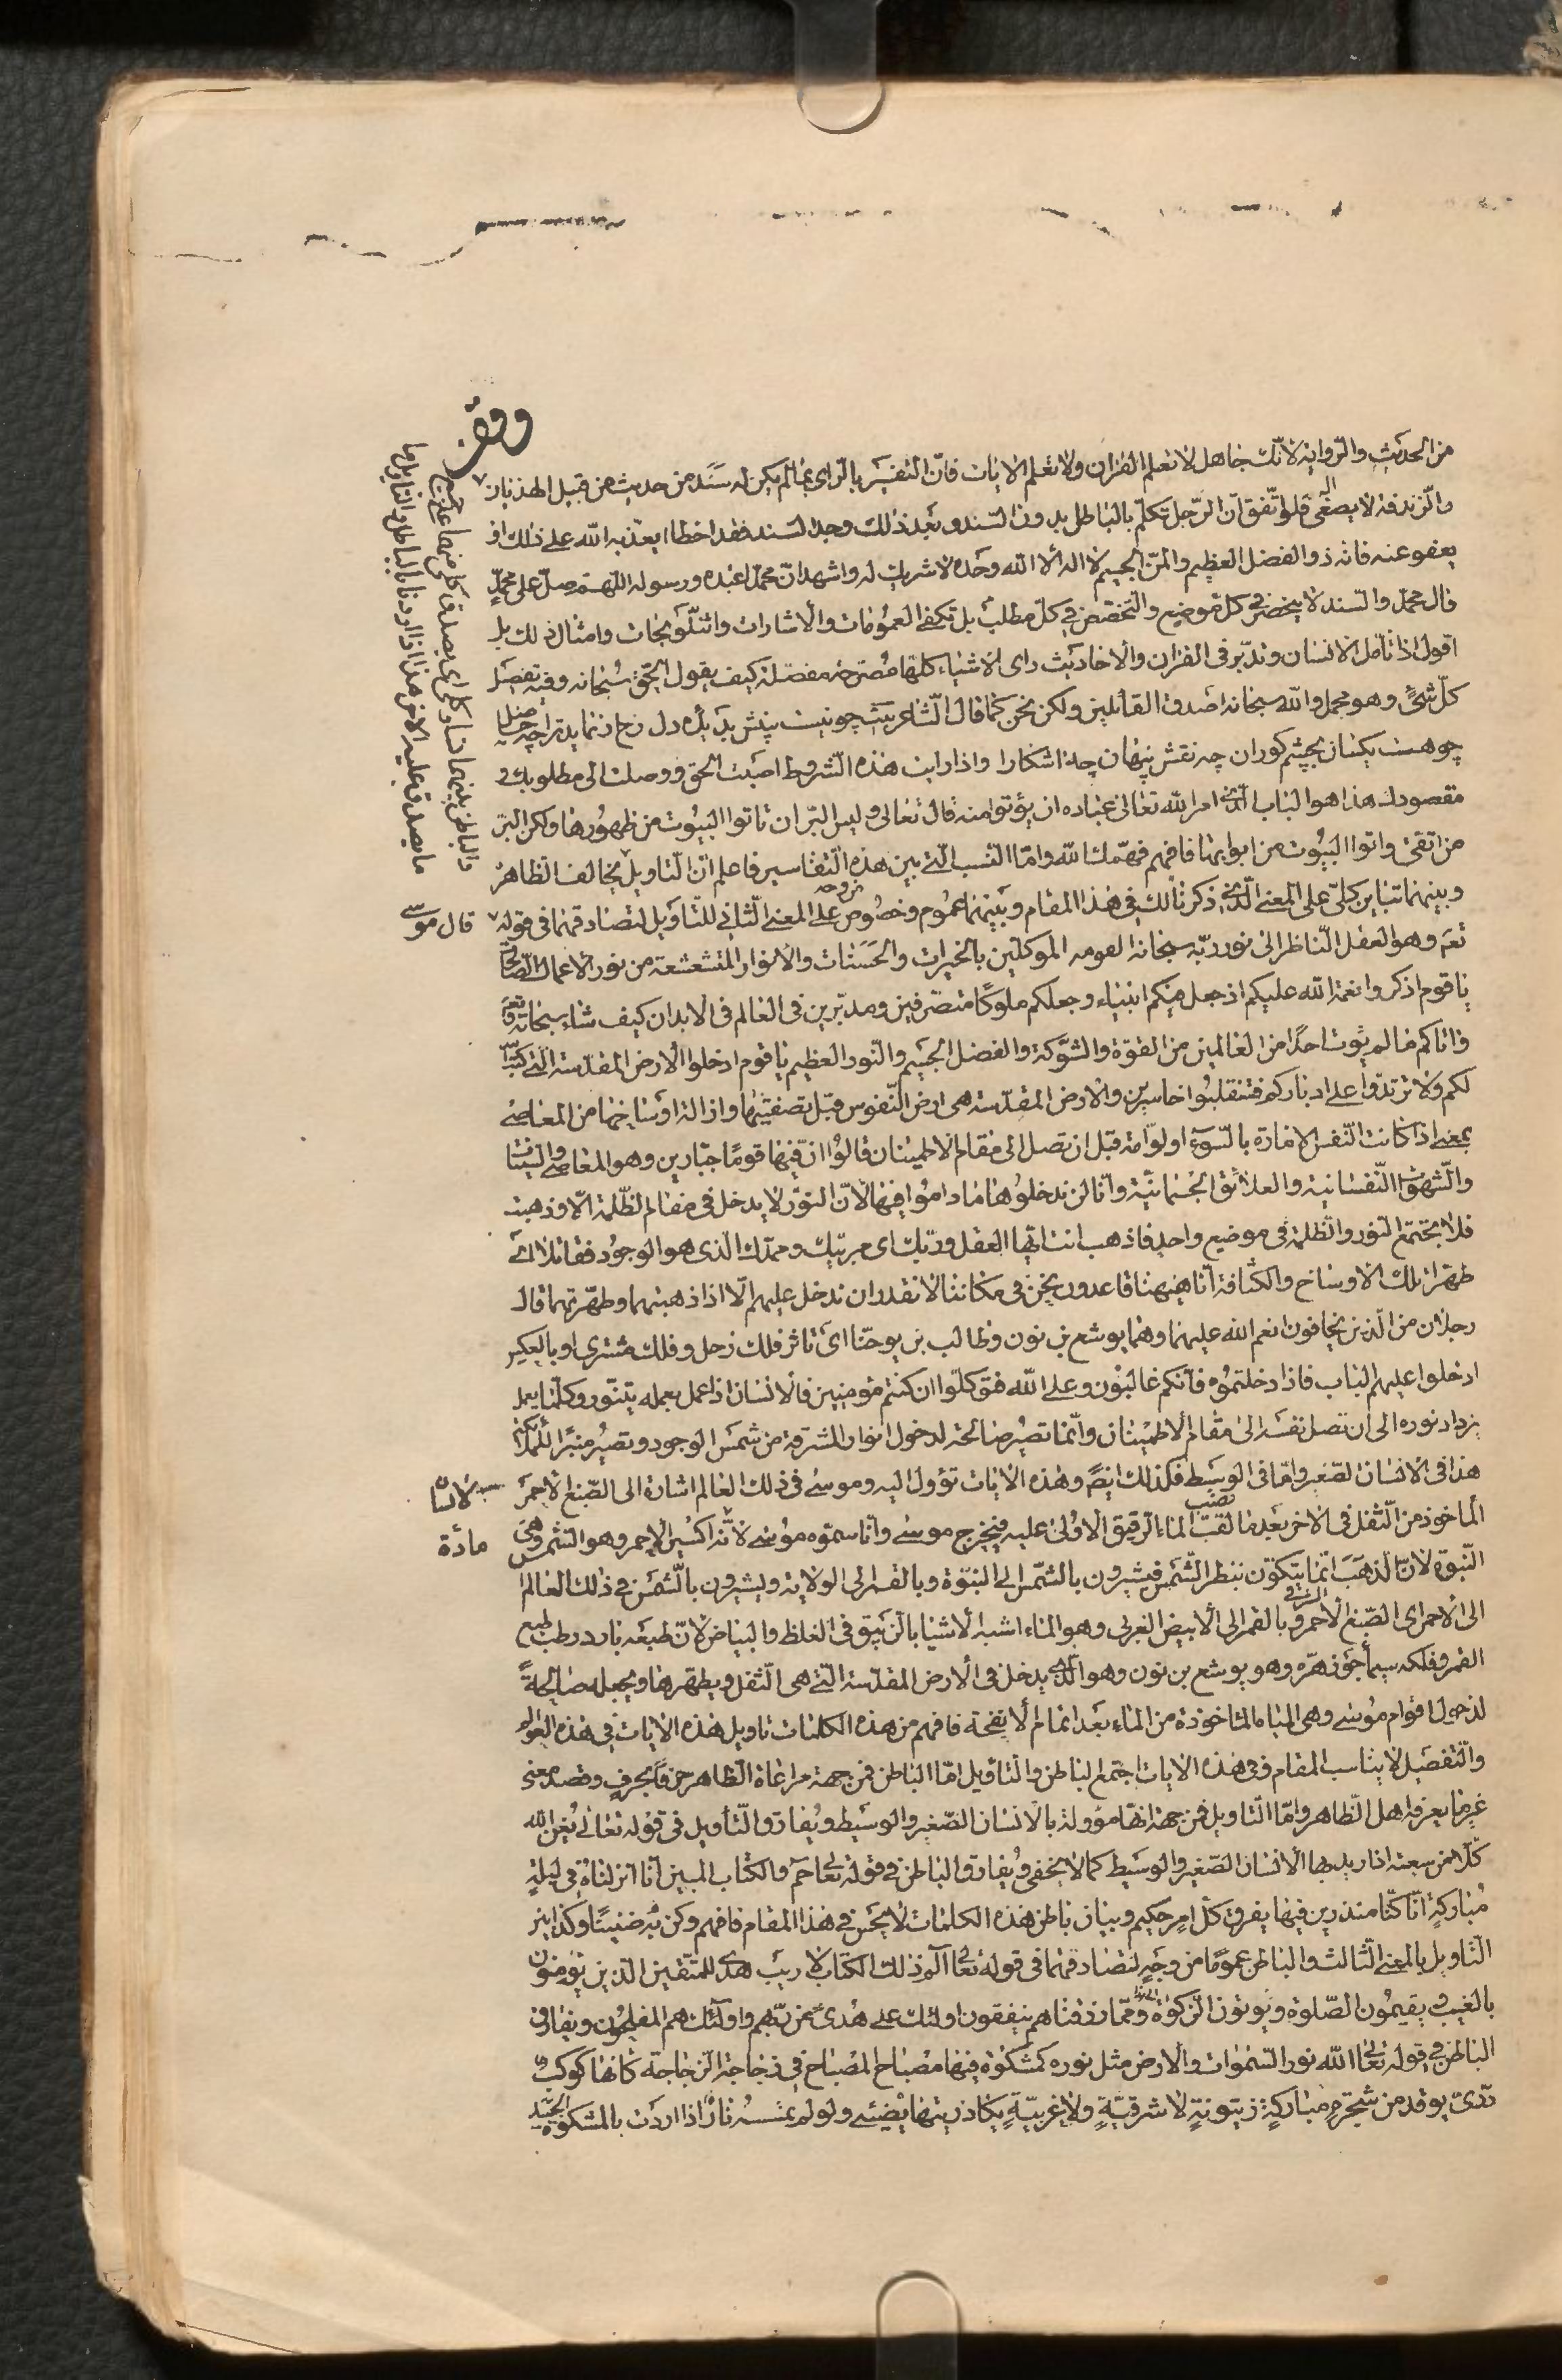 وقف
من الحديث والرواية لانك جاهل لا تعلم القران ولا تعلم الايات فان التفسير بالراى بما لم يكن له سند من حديث من قبيل الهذيان
والزندقة لا يصغى اليه فلو اتفق ان الرجل تكلم بالباطل بدون السند وبعد ذلك وجد السند فقد اخطا يعذبه الله على ذلك او
يعفو عنه فانه ذو الفضل العظيم والمن الجسيم لا اله الا الله وحده لا شريك له واشهد ان محمدا عبده ورسوله اللهم صل على محمد
وال محمد والسند لا ينحصر في كل موضع والتخصص في كل مطلب بل تكفي العمومات والاشارات والتلويحات وامثال ذلك بل
اقول اذا تامل الانسان وتدبر فى القران والاحاديث راى الاشياء كلها مصرحة مفصلة كيف يقول الحق سبحانه وفيه تفصيل
كل شئ وهو مجمل والله سبحانه اصدق القائلين ولكن نحن كما قال الشاعر بيت چو نيست بينش بديده دل رخ ار نمايد تراچه حاصل
چو هست يكسان بچشم كوران چه نقش پنهان چه اشكارا واذا رايت هذه الشروط اصبت الحق ووصلت الى مطلوبك و
مقصودك هذا هو الباب الذى امر الله تعالى عباده ان يؤتوا منه قال تعالى وليس البر ان تاتوا البيوت من ظهورها ولكن البر
من اتقى واتوا البيوت من ابوابها فافهم فهمك الله واما النسب التى بين هذه التفاسير فاعلم ان التاويل يخالف الظاهر
وبينهما تباين كلى على المعنى الذى ذكرنا لك فى هذا المقام وبينهما عموم وخصوص من وجه على المعنى الثانى للتاويل لتصادقهما فى قوله
قال موسى
نعم وهو العقل الناظر الى نور ربه سبحانه لقومه الموكلين بالخيرات والحسنات والانوار المتشعشعة من نور الاعمال الصالحة
يا قوم اذكروا نعمة الله عليكم اذ جعل منكم انبياء وجعلكم ملوكا متصرفين ومدبرين فى العالم فى الابدان كيف شاء سبحانه وتعالى
واتاكم ما لم يؤت احدا من العالمين من القوة والشوكة والفضل الجسيم والنور العظيم يا قوم ادخلوا الارض المقدسة التى كتب الله
لكم ولا ترتدوا على ادباركم فتنقلبوا خاسرين والارض المقدسة هى ارض النفوس قبل تصفيتها وازالة اوساخها من المعاصى
بمعنى اذا كانت النفس الامارة بالسوء او لوامة قبل ان تصل الى مقام الاطمينان قالوا ان فيها قوما جبارين وهو المعاصى والسيئات
والشهوات النفسانية والعلائق الجسمانية وانا لن ندخلها ما داموا فيها لان النور لا يدخل فى مقام الظلمة الا وذهبت
فلا يجتمع النور والظلمة فى موضع واحد فاذهب انت ايها العقل وربك اى مربيك وممدك الذى هو الوجود فقاتلا اى
طهرا تلك الاوساخ والكثافة انا ههنا قاعدون نحن فى مكاننا لا نقدر ان ندخل عليهم الا اذا ذهبتهما وطهرتهما قال
رجلان من الذين يخافون انعم الله عليهما وهما يوشع بن نون وطالب بن يوحنا اى تاثر فلك زحل وفلك مشترى او بالعكس
ادخلوا عليهم الباب فاذا دخلتموه فانكم غالبون وعلى الله فتوكلوا ان كنتم مؤمنين فالانسان اذا عمل بعمله يتنور وكلما يعمل
يزداد نوره الى ان تصل نفسه الى مقام الاطمينان وانما تصير صالحة لدخول انوار المشرقة من شمس الوجود وتصير منبرا للملائكة
هذا فى الانسان الصغير واما فى الوسيط فكذلك ايض وهذه الايات تؤول اليه وموسى فى ذلك العالم اشارة الى الصبغ الاحمر
المأخوذ من الثفل فى الاخر بعد ما لقب الماء الرقيق الاولى عليه فيخرج موسى وانا سموه موسى لانه اكسير الاحمر وهو الشمس وهى
مادة
النبوة لان الذهب انما يتكون بنظر الشمس فيشيرون بالشمس الى النبوة وبالقمر الى الولاية ويشيرون بالشمس فى ذلك العالم
الى الاحمر اى الصبغ الاحمر الشرقى وبالقمر الى الابيض الغربى وهو الماء اشبه الاشيا بالزيبق فى الغلظ والبياض لان طبعه بارد رطب طبع
القمر وفلكه سيما جوزهره وهو يوشع بن نون وهو الذى يدخل فى الارض المقدسة التى هى الثفل ويطهرها ويجعلها صالحة
لدخول اقوام موسى وهى المياه الماخوذة من الماء بعد اتمام الانفحة فافهم من هذه الكلمات تاويل هذه الايات فى هذه العوالم
والتفصيل لا يناسب المقام ففى هذه الايات اجتمع الباطن والتاويل اما الباطن فمن جهة مراعاة الظاهر حرفا بحرف وقصد معنى
غير ما يعرفه اهل الظاهر واما التاويل فمن جهة انها مؤولة بالانسان الصغير والوسيط ويفارق التأويل فى قوله تعالى يغن الله
كلا من سعته اذا اريد بها الانسان الصغير والوسيط كما لا يخفى ويفارق الباطن فى قوله تعالى حم والكتاب المبين انا انزلناه فى ليلة
مباركة انا كنا منذرين فيها يفرق كل امر حكيم وبيان باطن هذه الكلمات لا يحسن فى هذا المقام فافهم وكن به ضنينا وكذا بين
التاويل بالمعنى الثالث والباطن عموما من وجه لتصادقهما فى قوله تعالى الم ذلك الكتاب لا ريب هدى للمتقين الذين يؤمنون
بالغيب ويقيمون الصلوة ويؤتون الزكوة ومما رزقناهم ينفقون اولئك على هدى من ربهم واولئك هم المفلحون ويفارق
الباطن فى قوله تعالى الله نور السموات والارض مثل نوره كمشكوة فيها مصباح المصباح فى زجاجة الزجاجة كانها كوكب
درى يوقد من شجرة مباركة زيتونة لا شرقية ولا غربية يكاد زيتها يضيئ ولو لم تمسسه نار اذا اردت بالمشكوة الجسد
والباطن بينهما تساو كلى اى يصدق كل منهما على جميع
ما يصدق عليه الاخر هذا اذا اردنا بالباطن والتاويل ما